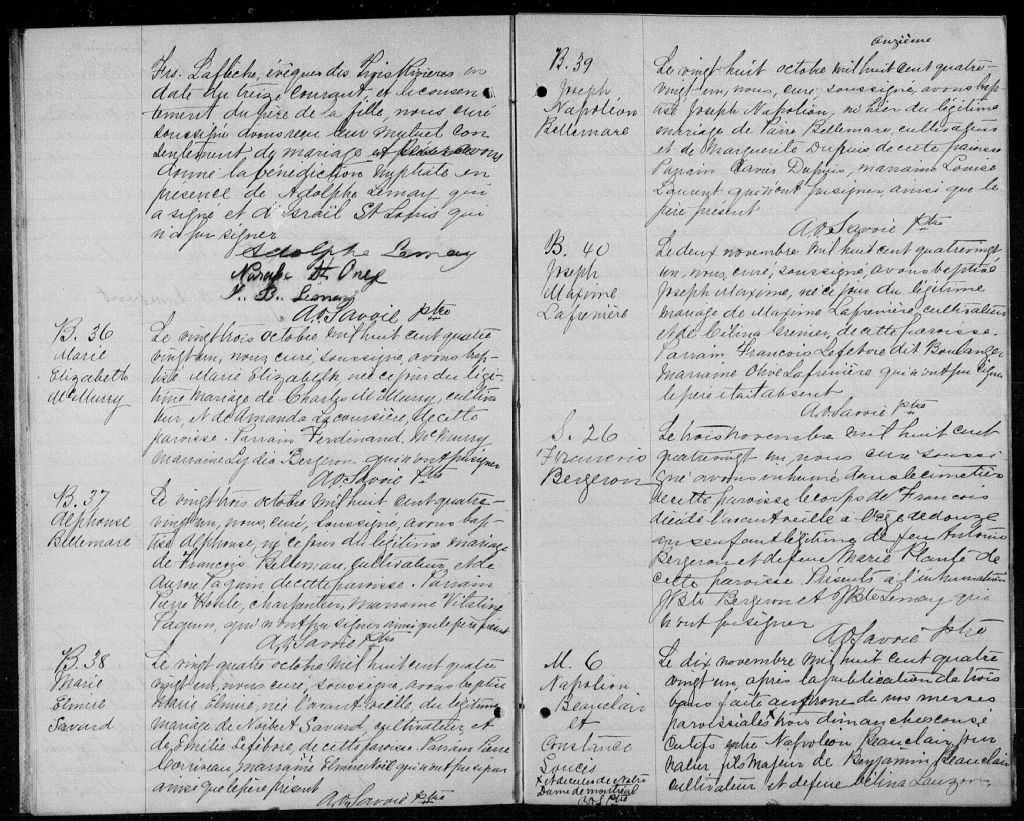 Frs. Lafleche, évêque des Trois Rivieres en
date du treize courant, et le consen-
tement du père de la fille, nous curé
soussigné avons reçu leur mutuel con
sentement de mariage et leur avons
donné la bénédiction nuptiale en
presence de Adolphe Lemay qui
a signé et d'Israël St Louis qui
n'a pu signer
Adolphe Lemay
J. B. Lemay
A.O. Savoie Ptre
B. 36
Marie
Elizabeth
McMurry
Le vingt trois octobre mil huit cent quatre
vingt un, nous curé soussigné, avons bap-
tisé Marie Elizabeth née ce jour du légi-
time mariage de Charles McMurry, cultiva
teur, et de Amanda Lacoursière, de cette
paroisse. Parrain Ferdinand McMurry
Marraine Lydia Bergeron qui n'ont pu signer
A.O. Savoie Ptre
B. 37
Alphonse
Bellemare
Le vingt trois octobre mil huit cent quatre-
vingt un, nous, curé, soussigné, avons bap-
tisé Alphonse, né ce jour du légitime mariage
de François Bellemare, cultivateur, et de
Aurore Paquin de cette paroisse. Parrain
Pierre Houle, charpentier, marraine Vitaline
Paquin, qui n'ont pu signer ainsi que le père présent
A.O. Savoie Ptre
B. 38
Marie
Elmire
Savard
Le vingt quatre octobre mil huit cent quatre
vingt un, nous curé, soussigné, avons baptisé
Marie Elmire, née l'avant veille, du légitime
mariage de Norbert Savard, cultivateur et
de Emilie Lefebvre, de cette paroisse. Parrain Pierre
Corriveau, marraine Elmire qui n'ont pu signer
ainsi que le père présent
A.O. Savoie Ptre
onzième
B. 39
Joseph
Napoléon
Bellemare
Le vingt huit octobre mil huit cent quatre-
vingt un, nous, curé soussigné, avons bap
tisé Joseph Napoléon, né hier du légitime
mariage de Pierre Bellemare, cultivateur
et de Marguerite Dupuis de cette paroisse
Parrain Xavier Dupuis, marraine Louise
Laurent qui n'ont pu signer ainsi que le
père présent
A.O. Savoie Ptre
B. 40
Joseph
Maxime
Lafrenière
Le deux novembre mil huit cent quatre vingt
un, nous, curé, soussigné, avons baptisé
Joseph Maxime, né ce jour du légitime
mariage de Maxime Lafrenière, cultivateur
et de Célina Grenier, de cette paroisse.
Parrain François Lefebvre dit Boulanger
Marraine Olive Lafrenière qui n'ont pu signer
le père était absent
A.O. Savoie Ptre
S. 26
Francois
Bergeron
Le trois novembre mil huit cent
quatre vingt un, nous curé soussi
gné avons inhumé dans le cimetière
de cette paroisse le corps de Francois
décédé l'avant veille à l'age de douze
ans enfant légitime de feu Antoine
Bergeron et de feue Marie Plante de
cette paroisse Présents à l'inhumation
JBte Bergeron et JBte Lemay qui
n'ont pu signer
A.O. Savoie Ptre
M. 6
Napoléon
Beauclair
et
Constance
Loucis
Dame de Montréal
A.O.S Ptre
Le dix novembre mil huit cent quatre
vingt un, après la publication de trois
bans faite au prone de nos messes
paroissiales trois dimanches consé
cutifs entre Napoléon Beauclair, jour
nalier fils majeur de Benjamin Beauclair
cultivateur et de feue Célina Lauzon